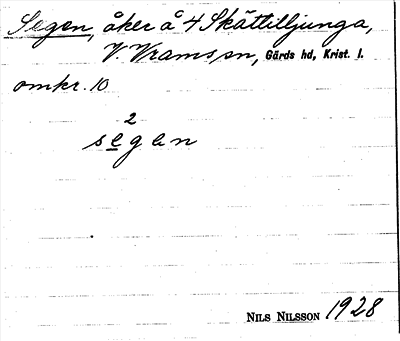 Segen, åker å 4 Skättilljunga,
V. Vram sn, Gärds hd, Krist. l.
omkr. 10
2
segen
NILS NILSSON 1928